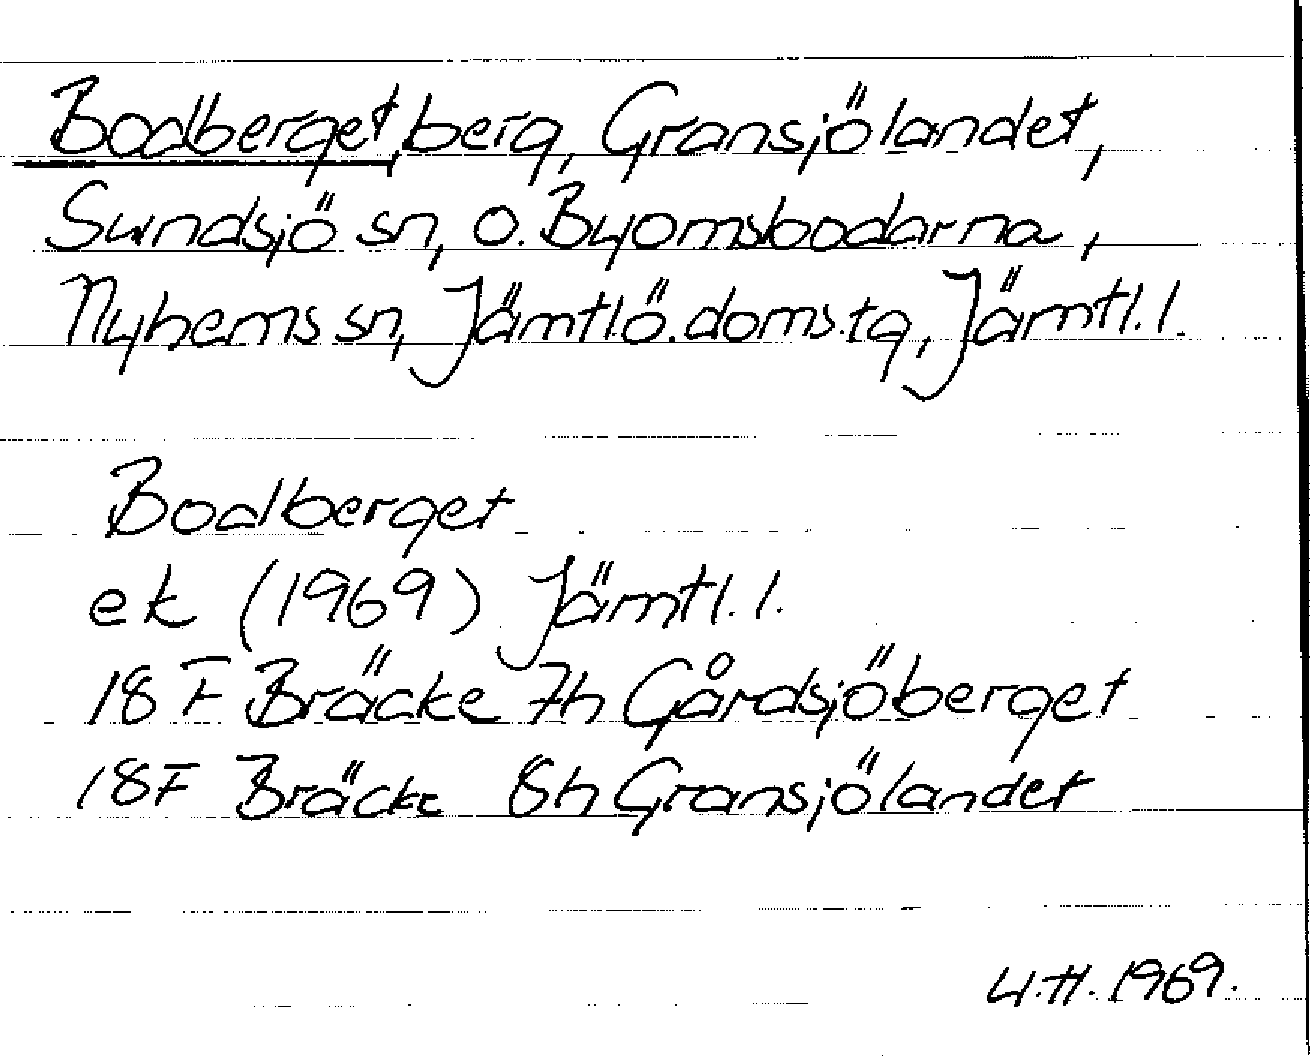 Bodberget, berg, Gransjölandet,
Sundsjö sn, o. Byomsbodarna,
Nyhems sn, Jämtl.ö. doms.tg, Jämtl. l.
Bodberget
ek (1969) Jämtl. l.
18 F Bräcke 7h Gårdsjöberget
18F Bräcke 8h Gransjölandet
1969.